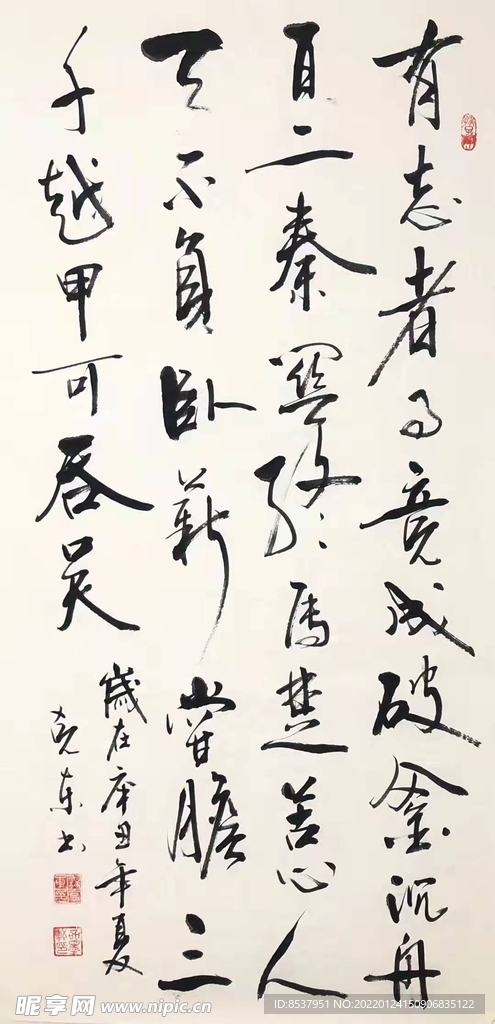 有志者事竟成破釜沉舟
百二秦關終屬楚苦心人
天不負卧薪嘗膽三
千越甲可吞吴
歲在庚丑年夏
克东书
昵享网 www.nipic.cn
ID:8537951 NO:20220124150906835122